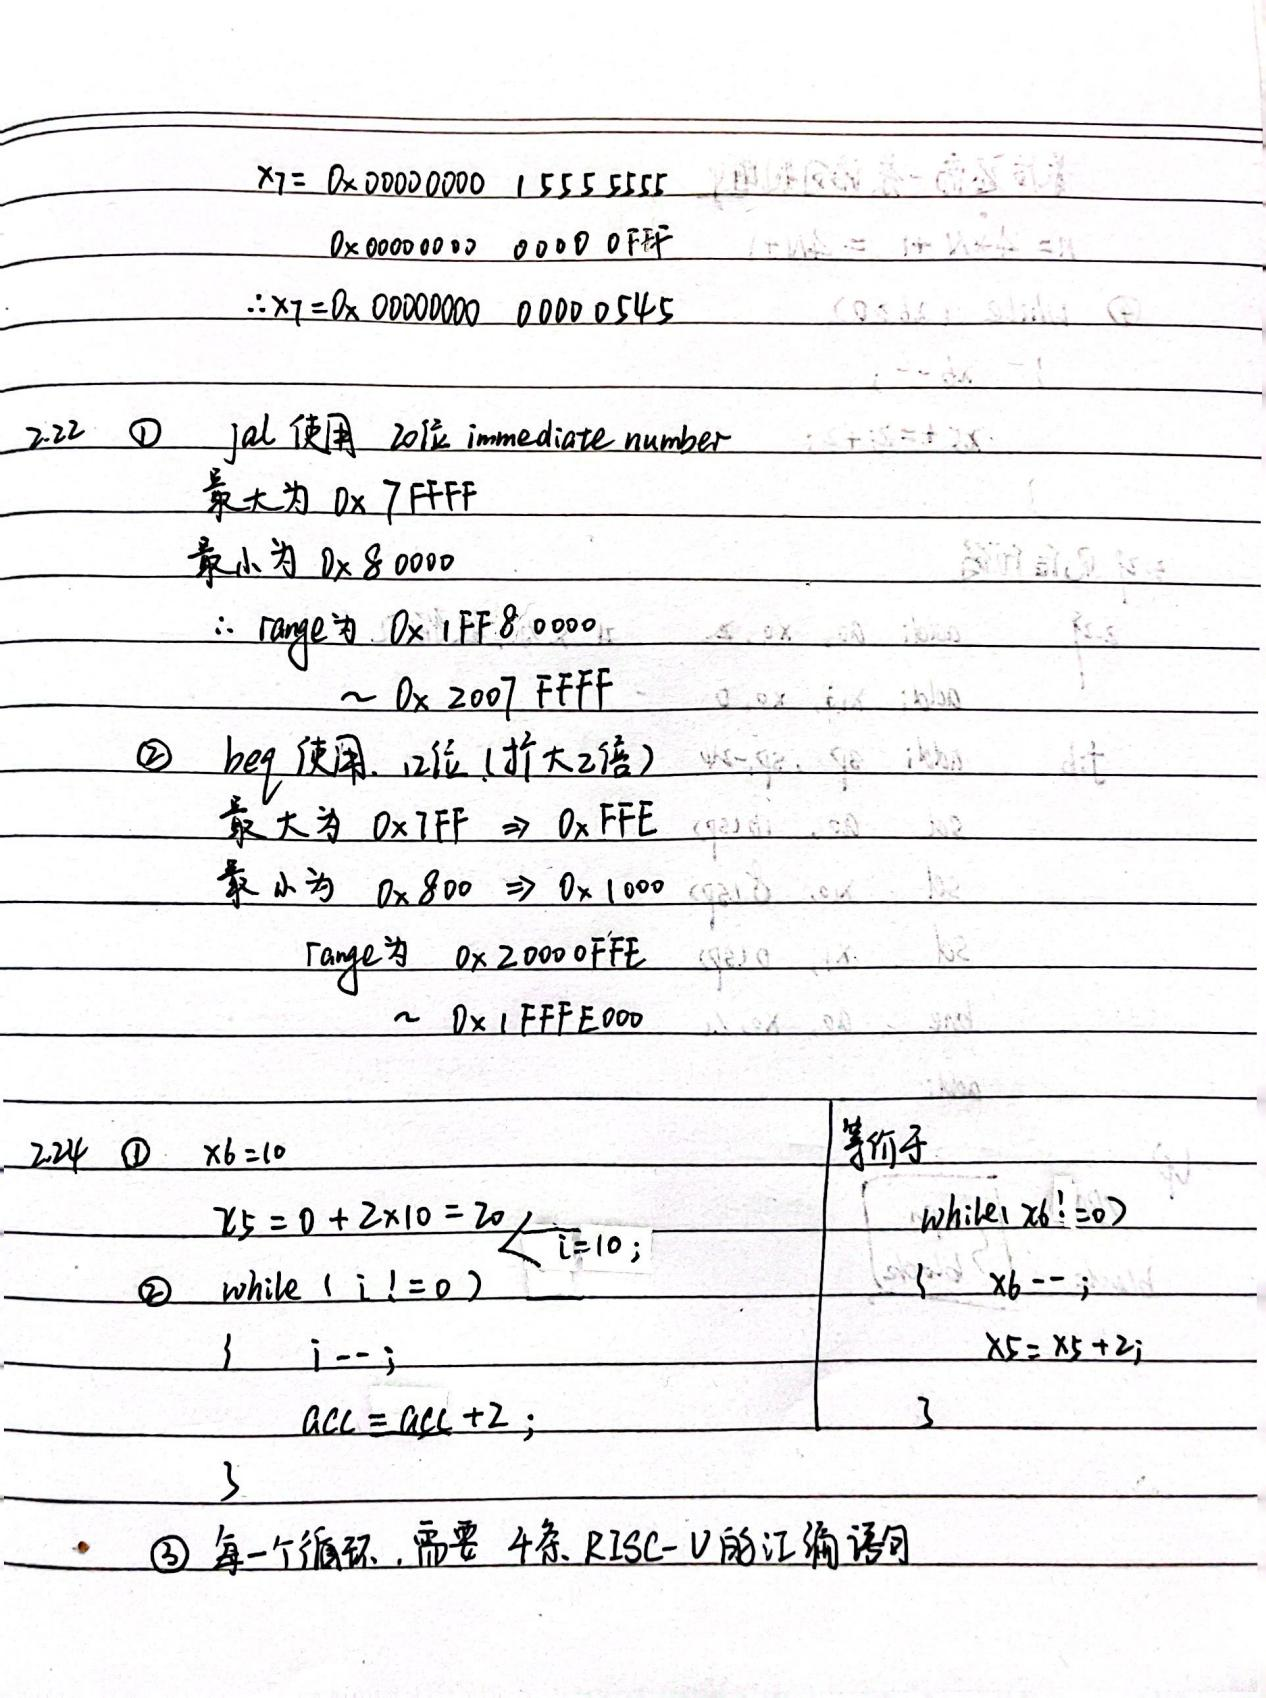 x7 = 0x 00000000 15555555
0x 00000000 0000 0FFF
∴x7=0x 00000000 0000 0545
2.22 ① jal 使用 20位 immediate number
最大为 0x 7FFFF
最小为 0x 80000
∴ range为 0x 1FF8 0000
~ 0x 2007 FFFF
② beq 使用 12位 (扩大2倍)
最大为 0x7FF ⇒ 0xFFE
最小为 0x800 ⇒ 0x1000
range为 0x20000FFE
~ 0x1FFFE000
2.24 ① x6=10
x5 = 0 + 2×10 = 20
i=10;
② while ( i != 0 )
{ i--;
acc = acc +2 ;
}
等价于
while( x6 ! =0 )
{ x6 -- ;
x5 = x5 +2;
}
③ 每一个循环,需要 4条 RISC-V的汇编语句